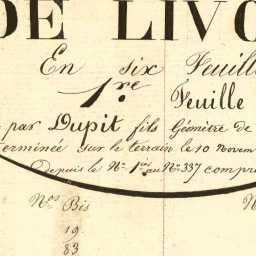 DE LIVO
En six Feuille
1.re Feuille
par Dupit fils Géomètre de
erminée sur le terrain le 10 Novem
Depuis le N.º 1.er au N.º 337 compr
N.os Bis
N
19
83